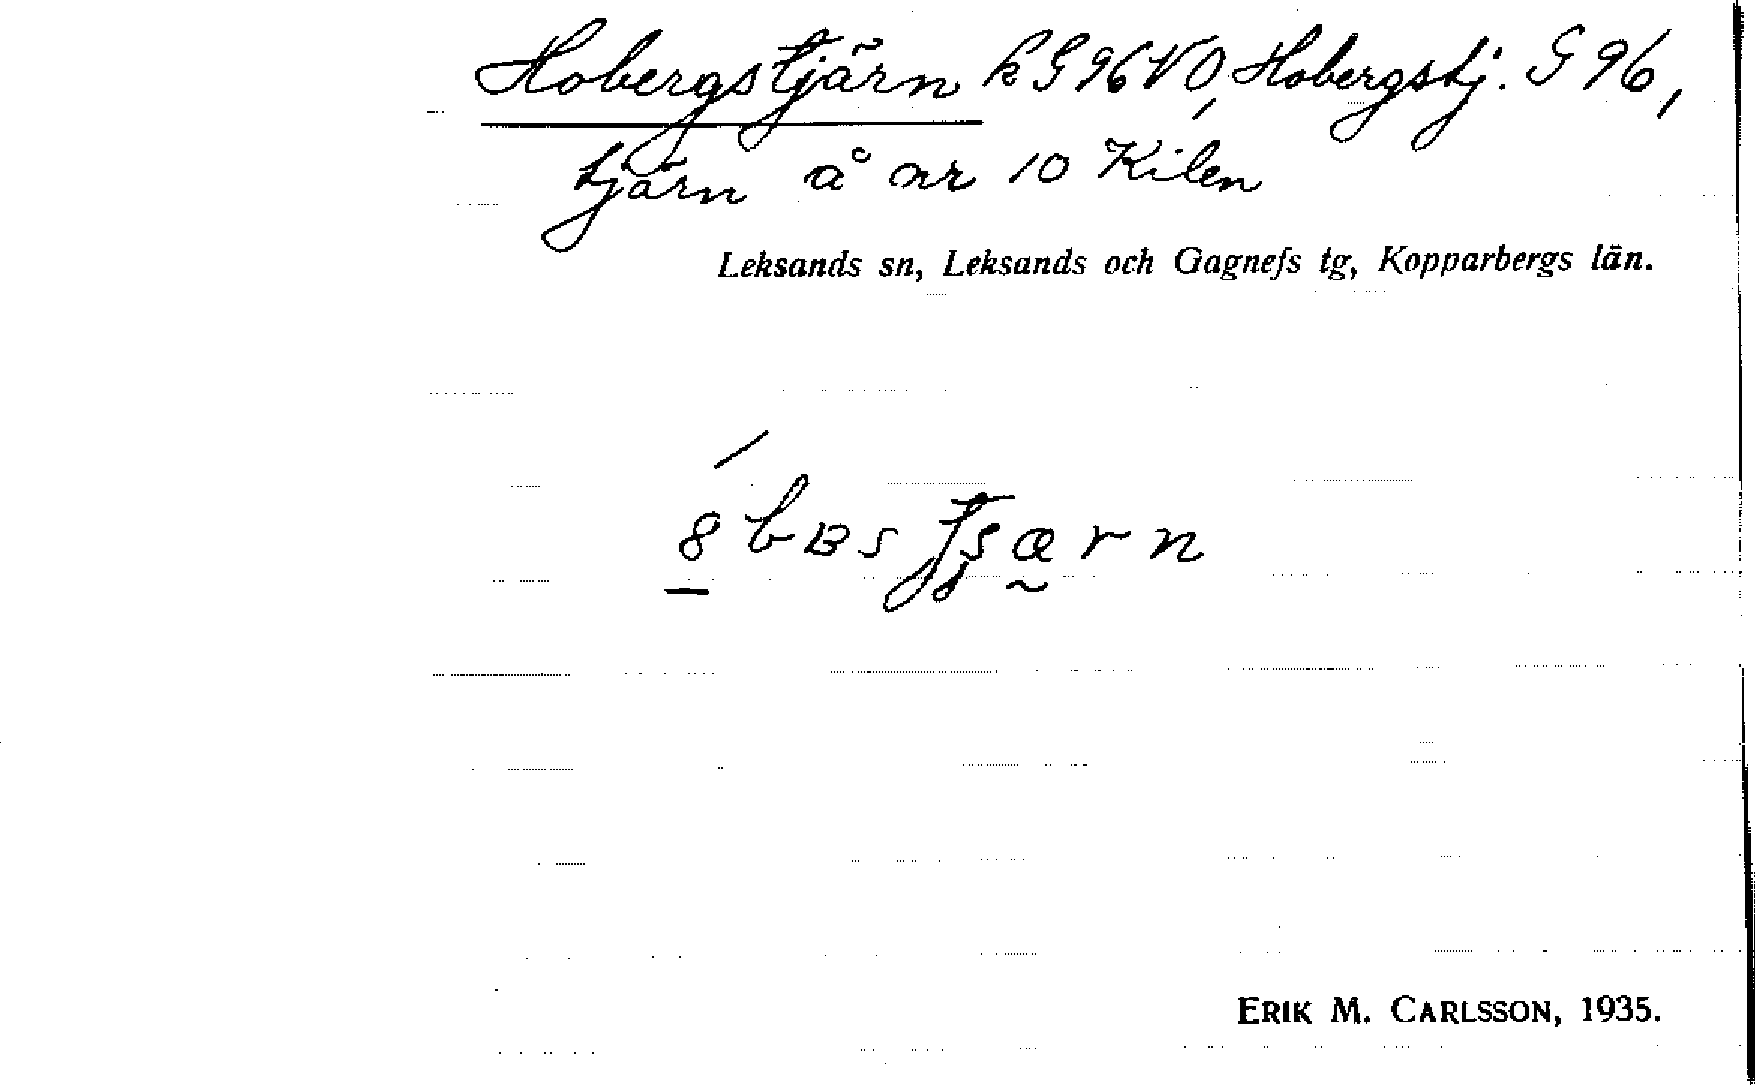 Hobergstjärn k G 96 NO, Hobergstj. G 96,
tjärn å nr 10 Kilen
Leksands sn, Leksands och Gagnefs tg, Kopparbergs län.
ERIK M. CARLSSON, 1935.